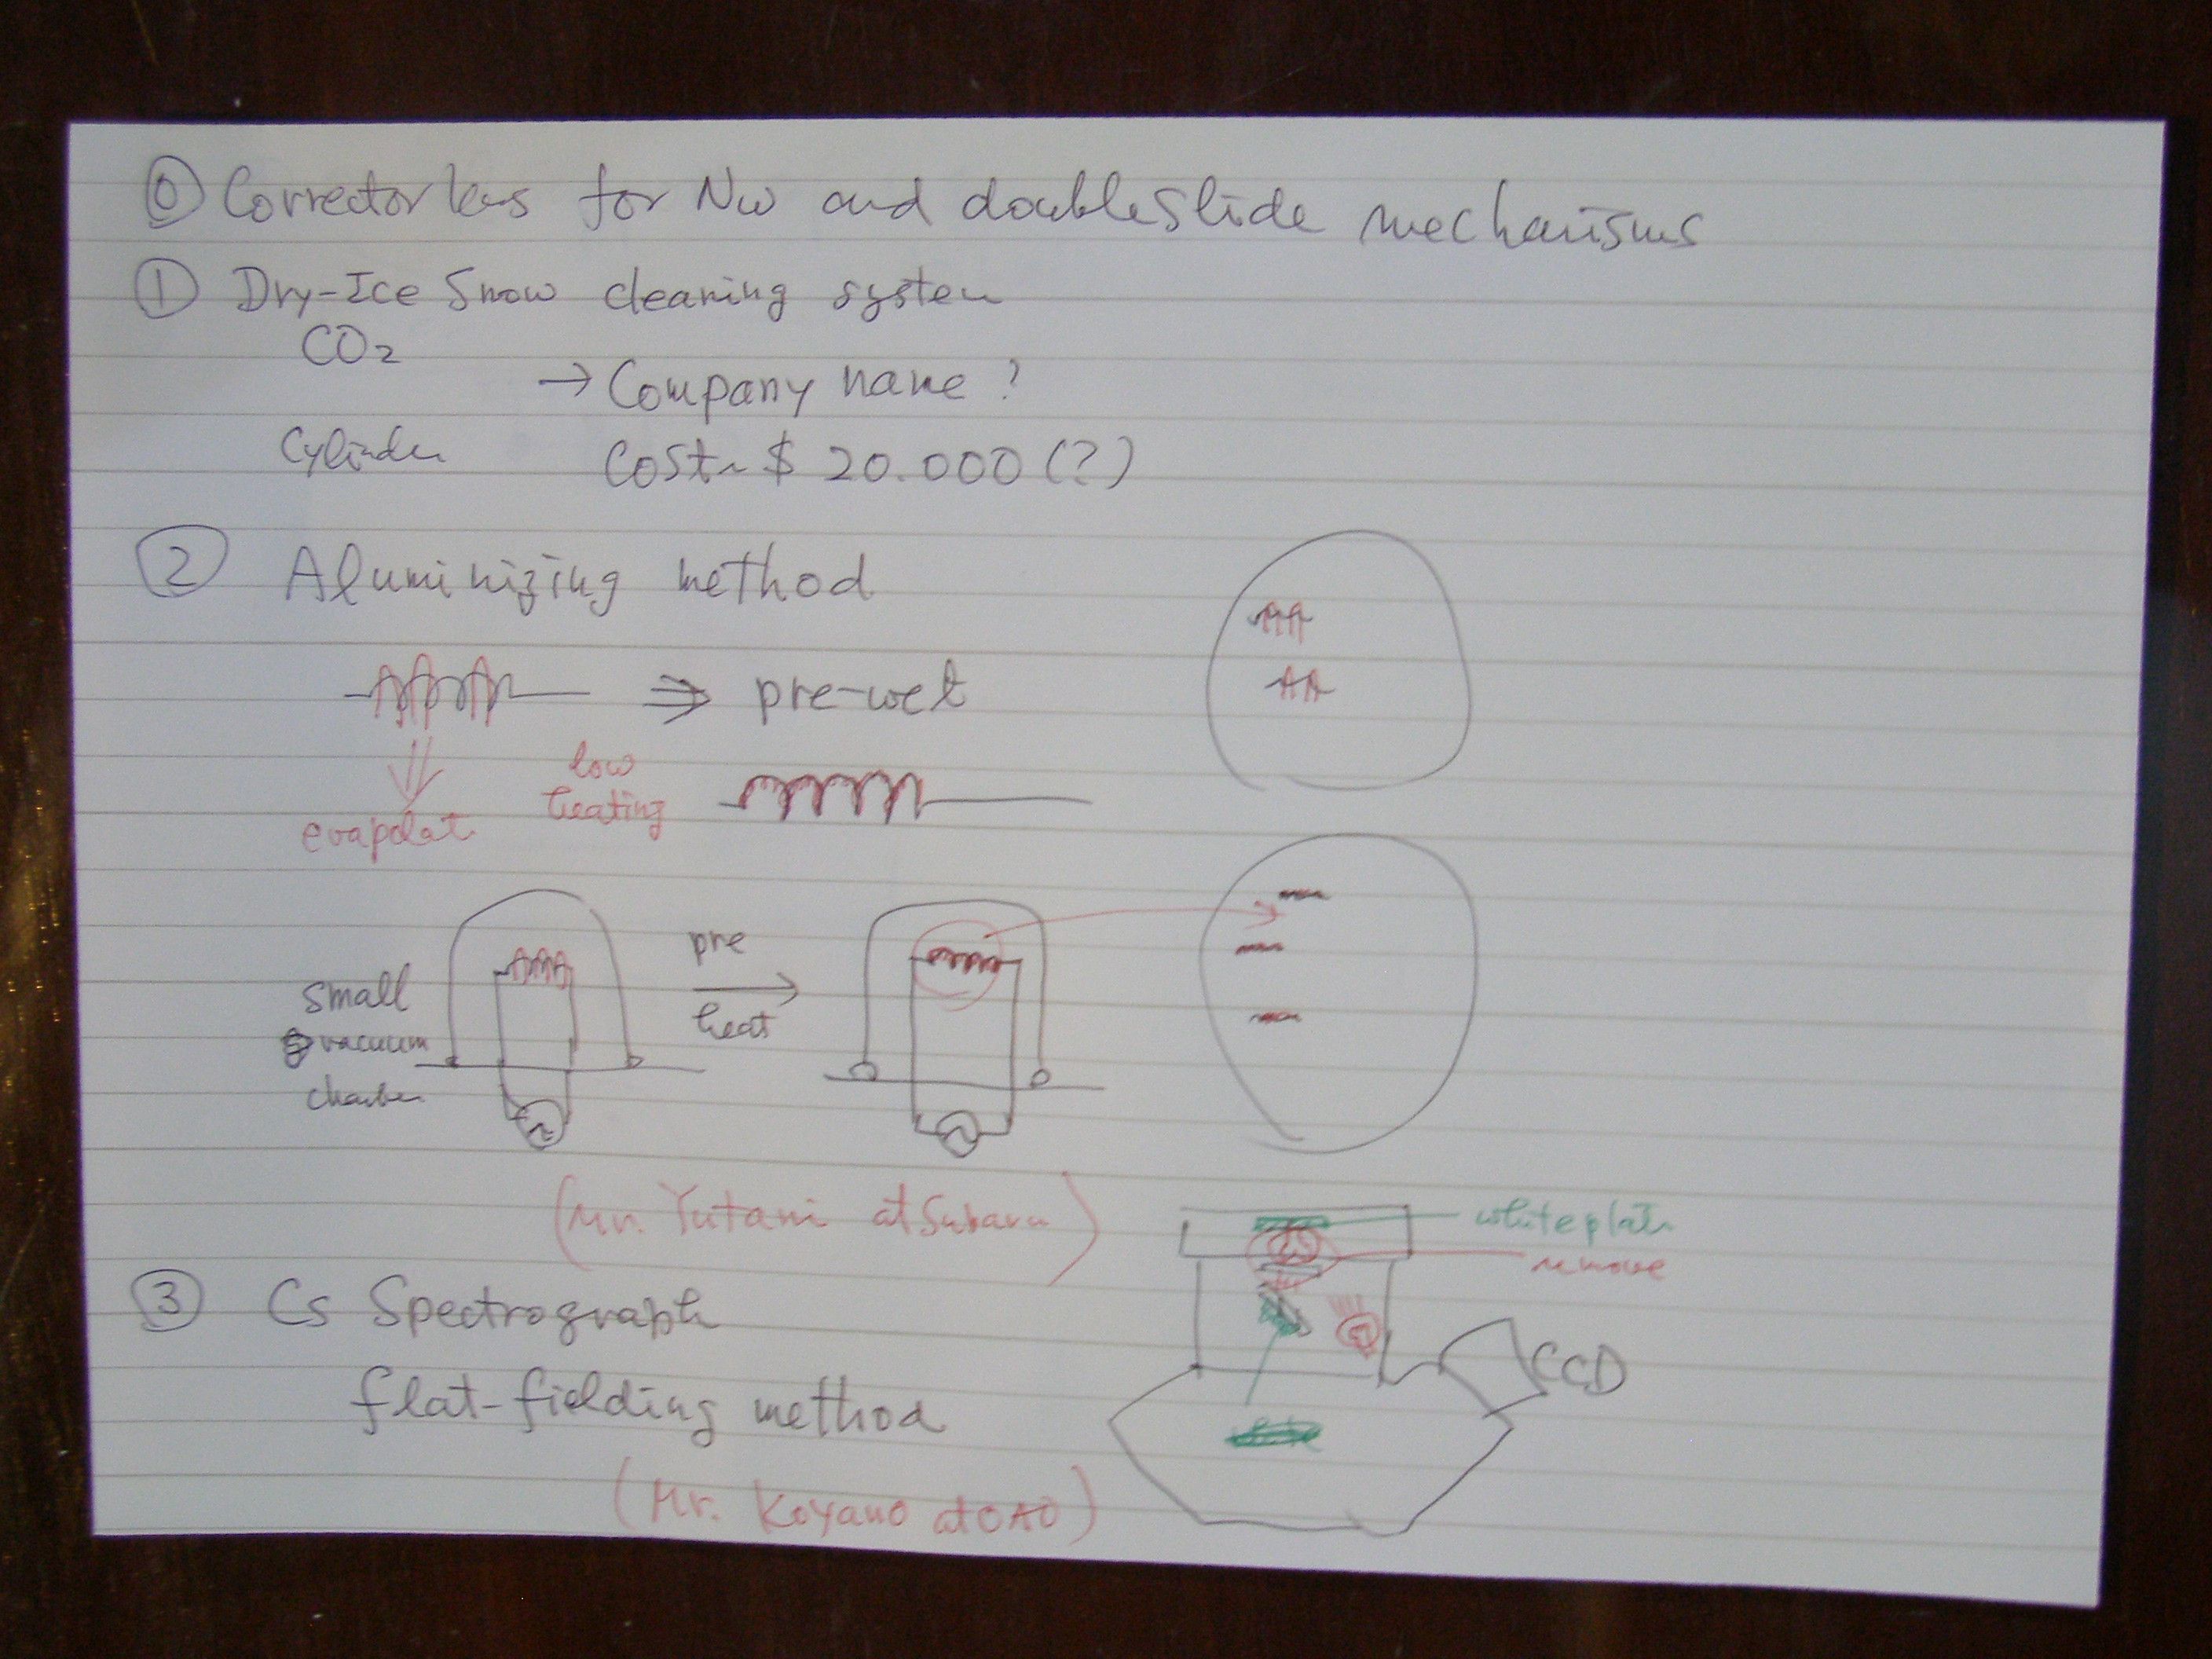 ⓪ Corrector lens for Nw and doubleslide mechanisms
① Dry-Ice Snow cleaning system
CO2
→ Company name ?
Cylinder Cost~ $ 20.000 (?)
② Aluminizing method
⇒ pre-wet
low
heating
evapolat
pre
heat
small
vacuum
chamber
(Mr. Yutani at Subaru)
white plate
remove
③ Cs Spectrograph
flat-fielding method
CCD
(Mr. Koyano at OAO)